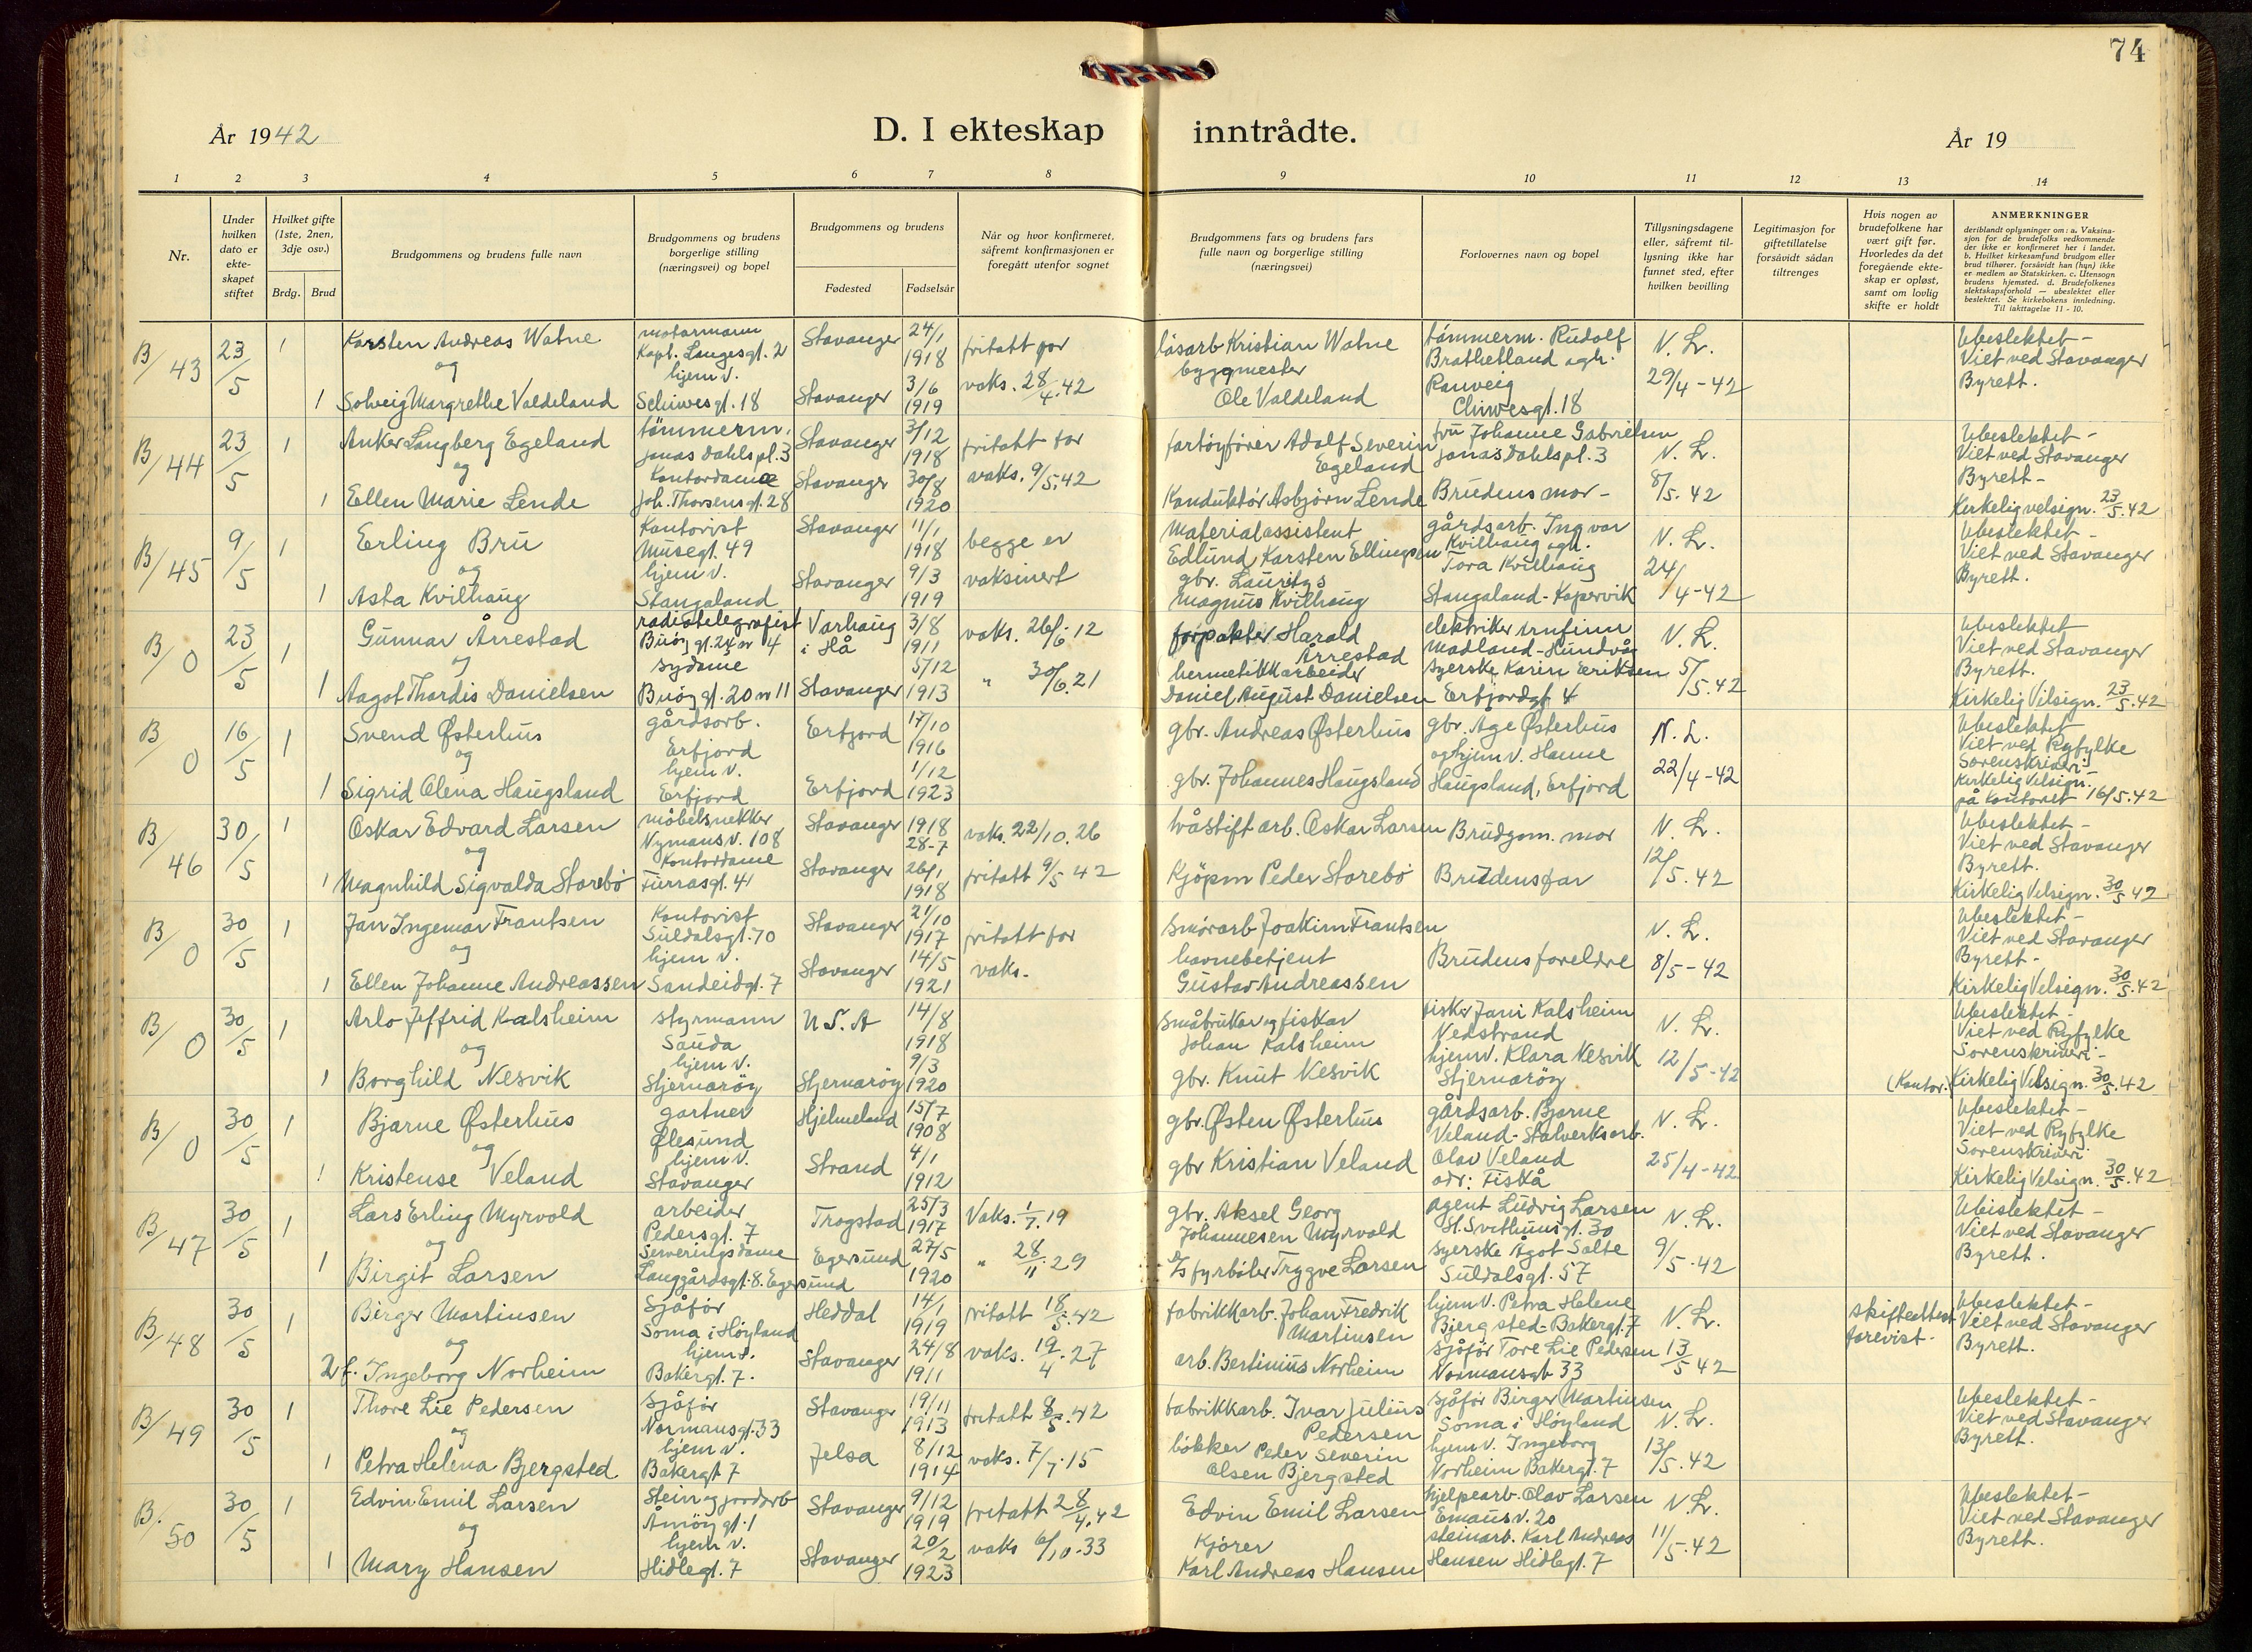 74
År 1942
D. I ekteskap inntrådte.
År 19
1 2 3 4 5 6 7 8 9 10 11 12 13 14
Nr.
Under hvilken dato er ekte-skapet stiftet
Hvilket gifte (1ste, 2nen, 3dje osv.)
Brdg. Brud
Brudgommens og brudens fulle navn
Brudgommens og brudens borgerlige stilling (næringsvei) og bopel
Brudgommens og brudens
Fødested Fødselsår
Når og hvor konfirmeret, såfremt konfirmasjonen er foregått utenfor sognet
Brudgommens fars og brudens fars fulle navn og borgerlige stilling (næringsvei)
Forlovernes navn og bopel
Tillysningsdagene eller, såfremt til-lysning ikke har funnet sted, efter hvilken bevilling
Legitimasjon for giftetillatelse forsåvidt sådan tiltrenges
Hvis nogen av brudefolkene har vært gift før. Hvorledes da det foregående ekte-skap er opløst, samt om lovlig skifte er holdt
ANMERKNINGER
deriblandt oplysninger om: a. Vaksina-
sjon for de brudefolks vedkommende
der ikke er konfirmeret her i landet.
b. Hvilket kirkesamfund brudgom eller
brud tilhører, forsåvidt han (hun) ikke
er medlem av Statskirken. c. Utensogn
brudens hjemsted. d. Brudefolkenes
slektskapsforhold — ubeslektet eller
beslektet. Se kirkebokens innledning.
Til iakttagelse 11 - 10.
B/43 23/5 1 Karsten Andreas Watne motormann Kapt. Langesgt. 2 Stavanger 24/1 1918 fritatt for låsarb Kristian Watne tømmerm. Rudolf Brathetland ogh. N. L. Ubeslektet - Viet ved Stavanger Byrett.
og
1 Solveig Margrethe Valdeland hjem v. Schiwesgt. 18 Stavanger 3/6 1919 vaks. 28/4.42 byggmester Ole Valdeland Ranveig Chiwesgt. 18 29/4-42
B/44 23/5 1 Anker Langberg Egeland tømmerm. Jonas Dahls pl. 3 Stavanger 3/12 1918 fritatt for fartøyfører Adolf Severin Egeland fru Johanne Gabrielsen Jonas Dahls pl. 3 N. L. Ubeslektet - Viet ved Stavanger Byrett -
og
1 Ellen Marie Lende Kontordame Joh. Thorsensgt. 28 Stavanger 30/8 1920 vaks. 9/5.42 Konduktør Asbjørn Lende Brudens mor - 8/5.42 Kirkelig velsign. 23/5.42
B/45 9/5 1 Erling Bru Kontorist Musegt. 49 Stavanger 11/1 1918 begge er Materialassistent Edlund Karsten Ellingsen gårdsarb. Ingvar Kvilhaug ogh. N. L. Ubeslektet - Viet ved Stavanger Byrett.
og
1 Asta Kvilhaug hjem v. Stangaland Stavanger 9/3 1919 vaksinert gbr. Lauritys Magnus Kvilhaug Tora Kvilhaug Stangaland - Kopervik 24/4-42
B/0 23/5 1 Gunnar Årrestad radiotelegrafist Buøygt. 24 nr 4 Varhaug i Hå 3/8 1911 vaks. 26/6.12 forpakter Harald Årrestad elektriker Arnfinn Madland - Hundvåg N. L. Ubeslektet Viet ved Stavanger Byrett.
og
1 Aagot Thordis Danielsen sydame Buøygt. 20 nr 11 Stavanger 5/12 1913 " 30/6.21 hermetikkarbeider Daniel August Danielsen syerske Karin Eeriksen Erfjordgt 4 5/5.42 Kirkelig Velsign. 23/5.42
B/0 16/5 1 Svend Østerhus gårdsarb. Erfjord Erfjord 17/10 1916 gbr. Andreas Østerhus gbr. Åge Østerhus N. L. Ubeslektet Viet ved Ryfylke Sorenskriveri
og
1 Sigrid Olena Haugsland hjem v. Erfjord Erfjord 1/12 1923 gbr. Johannes Haugsland og hjem v. Hanne Haugsland, Erfjord 22/4-42 Kirkelig Velsign. på Kontoret 16/5.42
B/46 30/5 1 Oskar Edvard Larsen møbelsnekker Nymans v. 108 Stavanger 1918 28-7 vaks. 22/10.26 tråstift arb. Oskar Larsen Brudgom. mor N. L. Ubeslektet - Viet ved Stavanger Byrett.
og
1 Magnhild Sigvalda Storebø Kontordame Furrasgt. 41 Stavanger 26/1 1918 fritatt 9/5 42 Kjøpm Peder Storebø Brudens far 12/5.42 Kirkelig Velsign. 30/5.42
B/0 30/5 1 Jan Ingemar Frantsen Kontorist Suldalsgt. 70 Stavanger 21/10 1917 fritatt for smørarb Joakim Frantsen N. L. Ubeslektet - Viet ved Stavanger Byrett -
og
1 Ellen Johanne Andreassen hjem v. Sandeidgt. 7 Stavanger 14/5 1921 vaks. havnebetjent Gustav Andreassen Brudens foreldre 8/5-42 Kirkelig Velsign. 30/5.42
B/0 30/5 1 Arlo Jeffrid Kalsheim styrmann Sauda U S. A 14/8 1918 småbruker og fisker Johan Kalsheim fisker Jani Kalsheim Nedstrand N. L. Ubeslektet - Viet ved Ryfylke Sorenskriveri -
og
1 Borghild Nesvik hjem v. Stjernarøy Stjernarøy 9/3 1920 gbr. Knut Nesvik hjem v. Klara Nesvik Stjernarøy 12/5-42 (Kontor.) Kirkelig Velsign. 30/5.42
B/0 30/5 1 Bjarne Østerhus gartner Ølesund Hjelmeland 15/7 1908 gbr. Østen Østerhus gårdsarb. Bjarne Veland - Stålverksarb. N. L. Ubeslektet - Viet ved Ryfylke Sorenskriveri
og
1 Kristense Veland hjem v. Stavanger Strand 4/1 1912 gbr Kristian Veland Olav Veland adr: Fiskå 25/4-42 Kirkelig Velsign. 30/5.42
B/47 30/5 1 Lars Erling Myrvold arbeider Pedersgt. 7 Trøgstad 25/3 1917 Vaks. 1/7.19 gbr. Aksel Georg Johannesen Myrvold agent Ludvig Larsen St. Svithunsgt. 30 N. L. Ubeslektet - Viet ved Stavanger Byrett.
og
1 Birgit Larsen Serveringsdame Langgårdsgt. 8. Egersund Egersund 27/5 1920 " 28/11.29 D/S fyrbøter Trygve Larsen syerske Ågot Salte Suldalsgt. 57 9/5.42
B/48 30/5 1 Birger Martinsen Sjåfør Soma i Høyland Heddal 14/1 1919 fritatt 18/5.42 fabrikkarb. Johan Fredrik Martinsen hjem v. Petra Helene Bjergsted - Bakergt. 7 N. L. skifteattest forevist - Ubeslektet - Viet ved Stavanger Byrett.
og
2 f. Ingeborg Norheim hjem v. Bakergt. 7. Stavanger 24/8 1911 vaks. 19/4.27 arb. Bertinius Norheim sjåfør Tore Lie Pedersen Normansgt 33 13/5 42
B/49 30/5 1 Thore Lie Pedersen Sjåfør Normansgt. 33 Stavanger 19/11 1913 fritatt 8/5.42 fabrikkarb. Ivar Julius Pedersen sjåfør Birger Martinsen Soma i Høyland N. L. Ubeslektet - Viet ved Stavanger Byrett.
og
1 Petra Helena Bjergsted hjem v. Bakergt 7 Jelsa 8/12 1914 vaks. 7/7.15 bøkker Peder Severin Olsen Bjergsted hjem v. Ingeborg Norheim Bakergt. 7 13/5.42
B/50 30/5 1 Edvin Emil Larsen Stein og jordarb Amøygt. 1 Stavanger 9/12 1919 fritatt 28/4.42 Edvin Emil Larsen hjelpearb. Olav Larsen Emaus v. 20 N. L. Ubeslektet - Viet ved Stavanger Byrett.
og
1 Mary Hansen hjem v. Hidlegt. 7 Stavanger 20/2 1923 vaks 6/10.33 Kjører Karl Andreas Hansen steinarb. Karl Andreas Hansen Hidlegt. 7 11/5.42